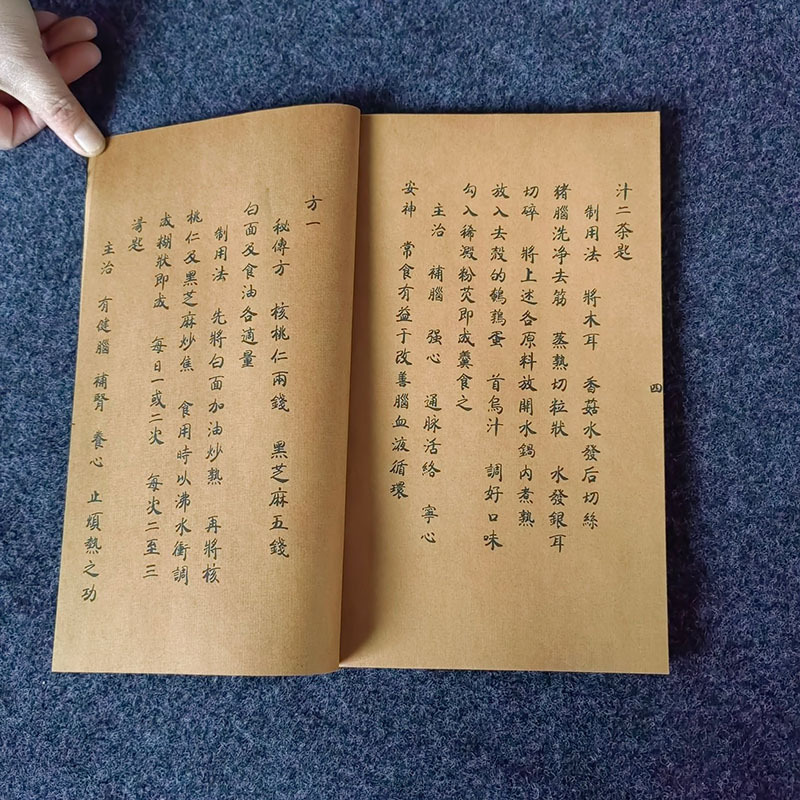 汁二茶匙
制用法 將木耳 香菇水發后切絲
猪腦洗净去筋 蒸熟切粒狀 水發銀耳
切碎 將上述各原料放開水鍋内煮熟
放入去殼的鹌鹑蛋 首烏汁 調好口味
勾入稀澱粉芡即成羹食之
主治 補腦 强心 通脉活絡 寧心
安神 常食有益于改善腦血液循環
四
方一
秘傳方 核桃仁兩錢 黑芝麻五錢
白面及食油各適量
制用法 先將白面加油炒熟 再將核
桃仁及黑芝麻炒焦 食用時以沸水衝調
成糊狀即成 每日一或二次 每次二至三
湯匙
主治 有健腦 補腎 養心 止煩熱之功